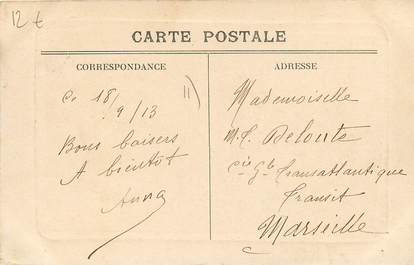 12 €
CARTE POSTALE
CORRESPONDANCE
ADRESSE
Ce 18/
9/13
Bons baisers
A bientôt
Anna
Mademoiselle
M. C. Deloute
Cie Gle Transatlantique
Transit
Marseille